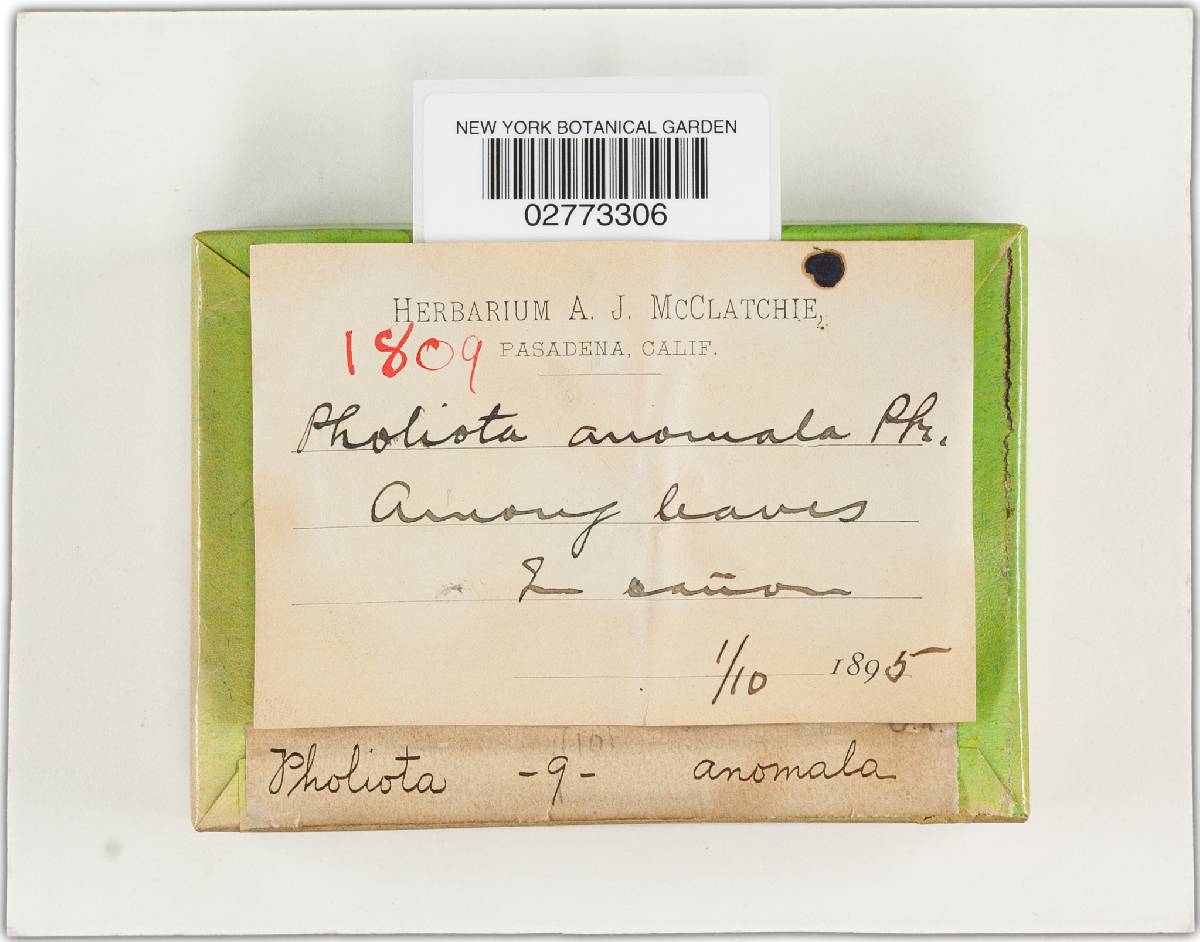 NEW YORK BOTANICAL GARDEN
02773306
HERBARIUM A. J. MCCLATCHIE,
1809 PASADENA, CALIF.
Pholiota anomala Pk.
Among leaves
In cañon
1/10 1895
(10)
Pholiota -9- anomala